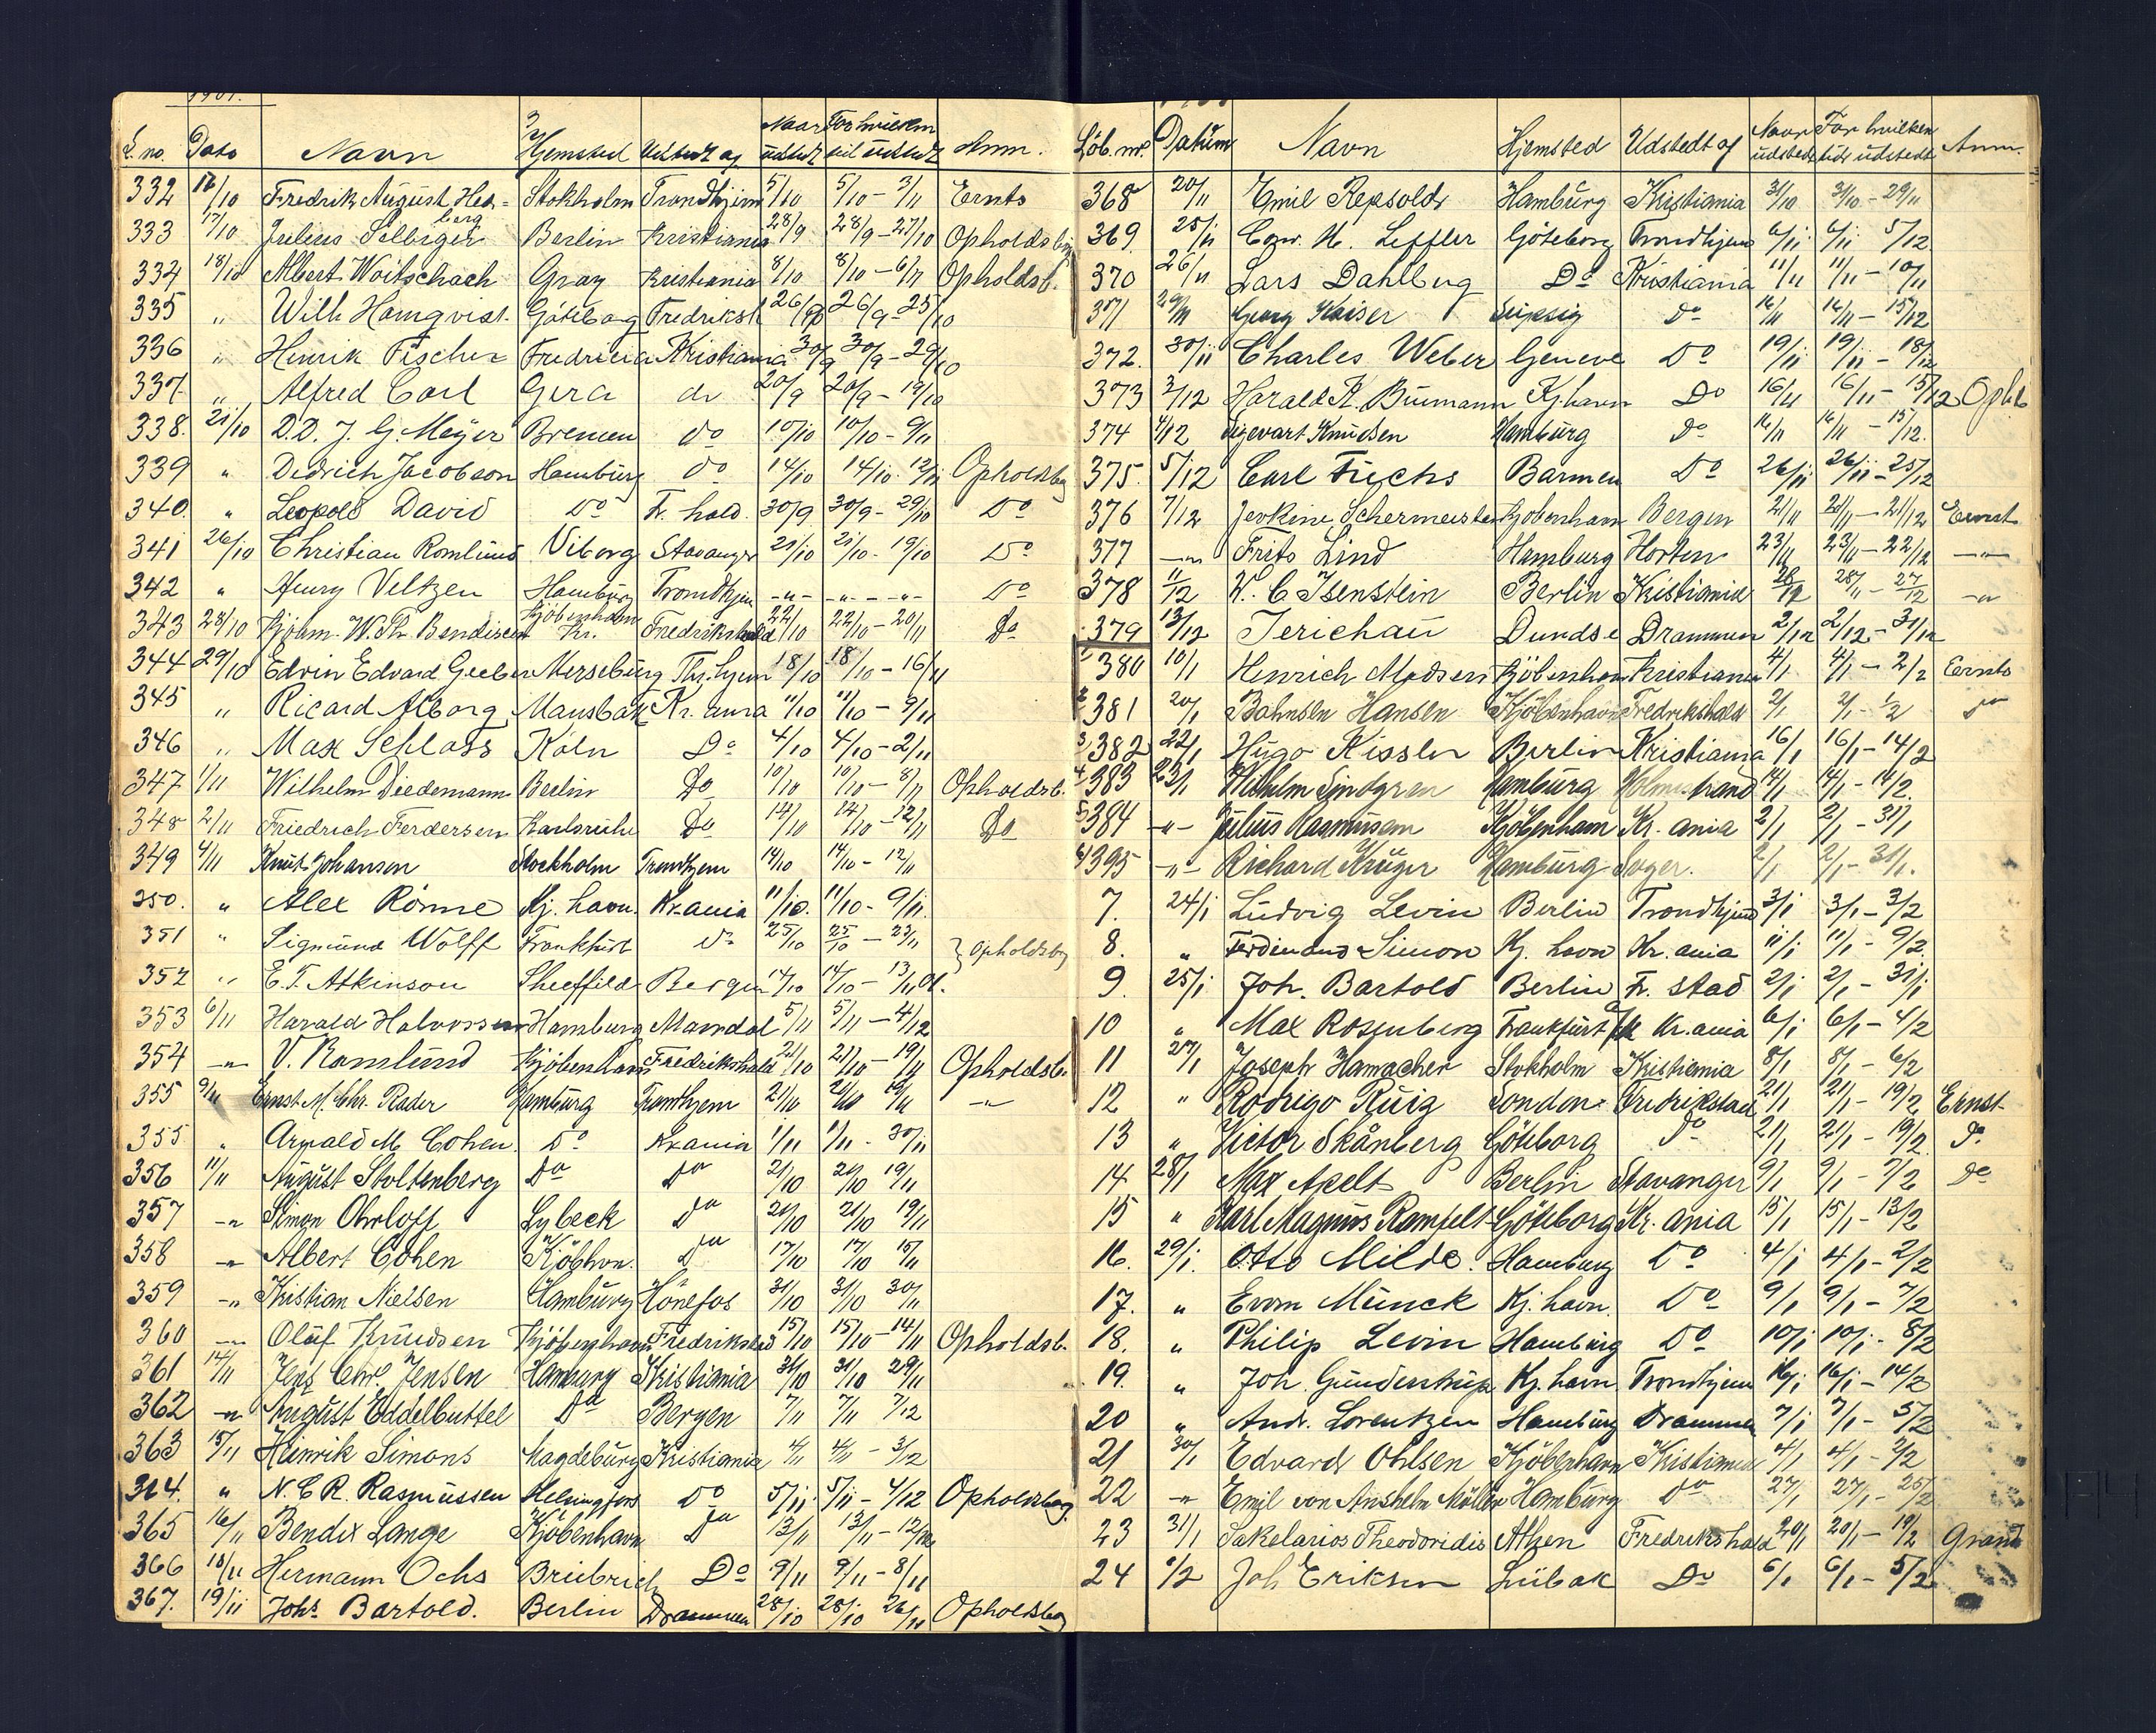 1901.
L. no. Dato Navn Hjemsted Udstedt af Naar udstedt For hvilken tid udstedt Anm.
332 16/10 Fredrik August Hed=berg Stokholm Trondhjem 5/10 5/10 - 3/11 Ernts
333 17/10 Julius Silbiger Berlin Kristiania 28/9 28/9 - 27/10 Opholdsbog
334 18/10 Albert Woitschach Graz Kristiania 8/10 8/10 - 6/11 Opholdsb.
335 " Wilh Hamqvist. Göteborg Fredriksh 26/9 26/9 - 25/10
336 " Henrik Fischer Fredricia Kristiania 30/9 30/9 - 29/10
337. " Alfred Carl Gera do 20/9 20/9 - 19/10
338. 21/10 D.D. J. G. Meyer Bremen do 10/10 10/10 - 9/11
339 " Didrich Jacobson Hamburg do 14/10 14/10 - 12/11 Opholdsbog
340. " Leopold David Do Fr. hald. 30/9 30/9 - 29/10 Do
341 26/10 Christian Romlund Viborg Stavanger 21/10 21/10 - 19/10 Do
342 " Henry Veltzen Hamburg Trondhjem -"- -"- -"- Do
343 28/10 Hjalm. W. Th. Bendixen Kjöbenhavn Fredrikshald 22/10 22/10 - 20/11 Do
344 29/10 Edvin Edvard Geeber Merseburg Thr. hjem 18/10 18/10 - 16/11
345 " Ricard Alborg Mansbak Kr. ania 11/10 11/10 - 9/11
346 " Max Schloss Köln Do 4/10 4/10 - 2/11
347 1/11 Wilhelm Diedemann Berlin Do 10/10 10/10 - 8/11 Opholdsb.
348 2/11 Friedrich Ferdersen Karlsruhe Do 14/10 14/10 - 12/11 Do
349 4/11 Knut Johansen Stockholm Trondhjem 14/10 14/10 - 12/11
350. " Alex Rönne Kj. havn. Kr-ania 11/10. 11/10 - 9/11.
351 " Sigmund Wolff Frankfurt Do 25/10 25/10 - 23/11 } Opholdsbog
352 " E. T. Atkinson Sheffield Bergen 14/10 14/10 - 13/11 01.
353 6/11 Harald Halvorssen Hamburg Mandal 5/11 5/11 - 4/12
354 -"- V. Ramlund Kjöbenhavn Fredrikshald 21/10 21/10 - 19/11 Opholdsb.
355 9/11 Ernst M. Chr. Rader Hamburg Tromthjem 21/10 21/10 19/11 -"-
355 " Arnald M. Cohen. Do Kr.ania 1/11 1/11 - 30/11
356 11/11 August Stoltenberg Do Do 21/10 21/10 19/11
357 -"- Simon Ohrloff Lybeck Do 21/10 21/10 19/11
358 -"- Albert Cohen Kjöbhvn. Do 17/10 17/10 15/11
359 -"- Kristian Nielsen Hamburg Hönefos 31/10 31/10 30/11
360 -"- Oluf Knudsen Kjöbenhavn Fredrikstad 15/10 15/10 - 14/11 Opholdsb.
361 14/11 Jens Chr. Jensen Hamburg Kristiania 31/10 31/10 29/11
362 -"- August Eddelbuttel Do Bergen 7/11 7/11 7/12
363 15/11 Heinrik Simons Magdeburg Kristiania 4/11 4/11 - 3/12
364. " N. C. R. Rasmussen Helsingfors Do 5/11 5/11 - 4/12 Opholdsbog.
365 16/11 Bendix Lange Kjöbenhavn Do 13/11 13/11 - 12/12
366 18/11 Hermann Ochs Briebrich Do 9/11 9/11 - 8/11
367. 19/11 Johs. Bartold. Berlin Drammen 28/10 28/10 26/11 Opholdsbog
Löb. nr. Datum Navn Hjemsted Udstedt af Naar udstedt For hvilken tid udstedt Anm.
368 20/11 Emil Repsoldr Hamburg Kristiania 31/10 31/10 - 29/11
369. 25/11 Conr. N. Leffler Göteborg Trondhjem 6/11 6/11 5/12
370 26/11 Lars Dahlberg Do Kristiania 11/11 11/11 - 10/11
371 29/11 Georg Kaiser Leipzig Do 16/11 16/11 - 15/12
372. 30/11 Charles Weber Geneve Do 19/11 19/11 - 18/12
373 3/12 Harald K. Buemann Kjhavn Do 16/11 16/11 - 15/12 Ophb
374 4/12 Sigevart Knudsen Hamburg Do 16/11 16/11 - 15/12.
375. 5/12 Carl Fuchs Barmen Do 26/11 26/11 - 25/12
376 7/12 Jerkine Schermeister Kjobenhavn Bergen 21/11 21/11 - 21/12 Ernst
377 -"- Frits Lind Hamburg Horten 23/11 23/11 - 22/12 -"-
378 11/12 K. C Isenstein Berlin Kristiania 28/12 28/11 - 27/12 -"-
379 13/12 Jerichau Dundse Drammen 2/12 2/12 - 31/12
1 380 10/1 Henrich Madsen Kjöbenhavn Kristiania 4/1 4/1 - 2/2 Ernts
2 381 20/1 Bahnsen Hansen Kjöbenhavn Fredrikshald 2/1 2/1 - 1/2 do
3 382 22/1 Hugo Kissler Berlin Kristiania 16/1 16/1 - 14/2
4 383 23/1 Wilhelm Lindgren Hamburg Holmestrand 14/1 14/1 - 14/2.
5 384 -"- Julius Rasmussen Kjöbenhavn Kr. ania 2/1 2/1 - 31/1
6 395 -"- Richard Krüger Hamburg Soger. 2/1 2/1 - 31/1.
7. 24/1 Ludvig Levin Berlin Trondhjem 3/1 3/1 - 3/2
8. " Ferdinand Simon Kj. havn Kr. ania 11/1 11/1 - 9/2.
9. 25/1 Joh. Bartold Berlin Fr. stad 2/1 2/1 - 31/1
10 " Max Rosenberg Frankfurt Kr. ania 6/1 6/1 - 4/2
11 27/1 Joseph Hamacher Stokholm Kristiania 8/1 8/1 - 6/2
12 " Rodrigo Ruig London Fredrikstad 21/1 21/1 - 19/2 Ernst
13 " Victor Skånberg Göteborg do 21/1 21/1 - 19/2. do
14. 28/1 Max Apelt Berlin Stavanger 9/1 9/1 - 7/2 do
15 " Karl Magnus Ramfelt Göteborg Kr. ania 15/1 15/1 - 13/2
16. 29/1. Otto Milde. Hamburg Do 4/1 4/1 - 2/2
17. " Evom Munck Kj. havn. Do 9/1 9/1 - 7/2
18. " Philip Levin Hamburg Do 10/1 10/1 - 8/2
19. " Joh. Gunderstrup Kj. havn Trondhjem 16/1 16/1 - 14/2
20 " Andr. Lorentzen Hamburg Drammen 7/1 7/1 - 5/2
21 30/1 Edvard Ohlsen Kjöbenhavn Kristiania 4/1 4/1 - 2/2
22 -"- Emil von Anshelm Müller Hamburg do 27/1 27/1 - 25/2
23 31/1 Sakelarios Theodoridis Athen Fredrikshald 20/1 20/1 - 19/2 Grand
24 1/2 Joh Eriksen Lübak Do 6/1 6/1 - 5/2